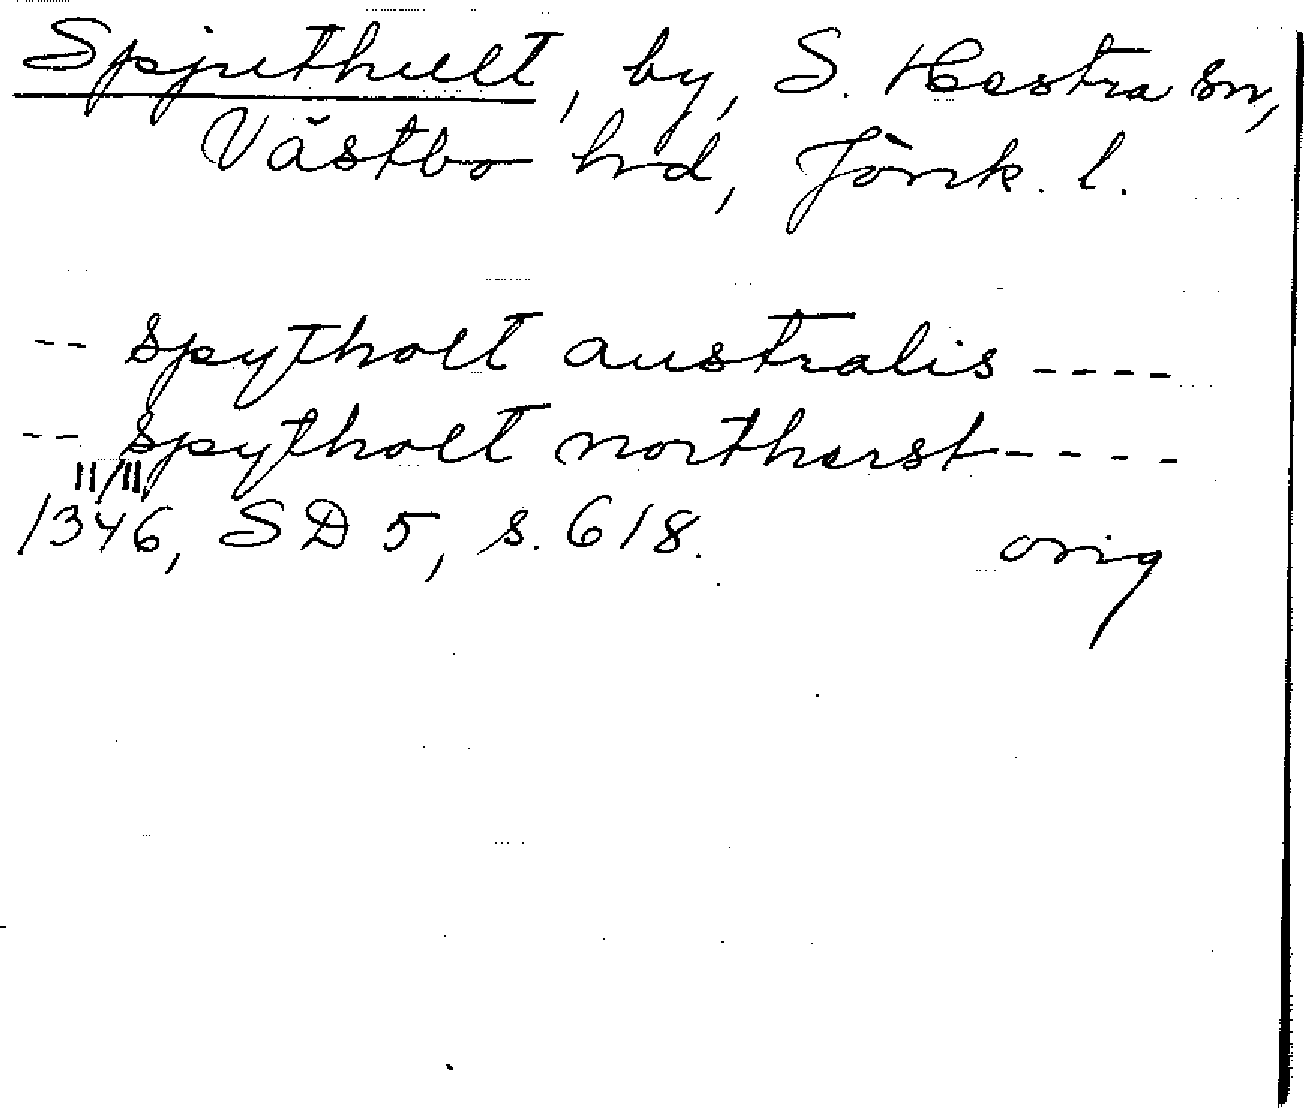 Spjuthult, by, S. Hestra sn,
Västbo hd, Jönk. l.
-- spytholt australis ----
-- spytholt northarst ----
11/11
1346, SD 5, s. 618. orig